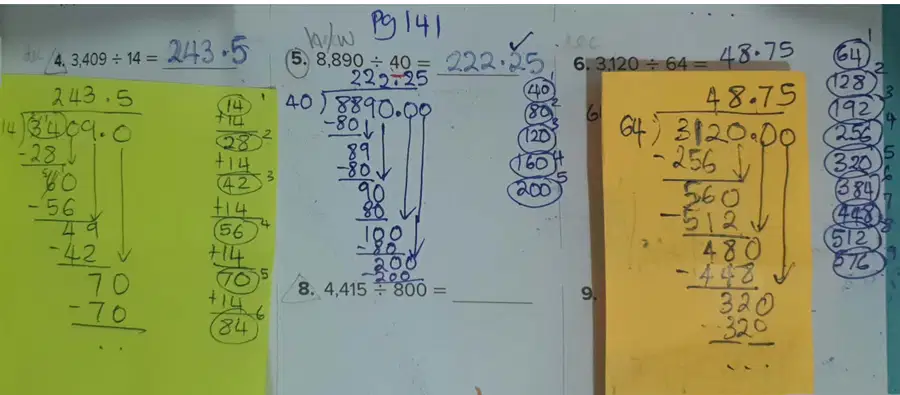 Pg 141
H/W
4. 3,409 ÷ 14 = 243.5
243.5
14 3409.0
-28
60
-56
49
-42
70
-70
...
14 1
+14
28 2
+14
42 3
+14
56 4
+14
70 5
+14
84 6
5. 8,890 ÷ 40 = 222.25 ✓
222.25
40 8890.00
-80
89
-80
90
80
100
-80
200
-200
40 1
80 2
120 3
160 4
200 5
8. 4,415 ÷ 800 =
6. 3,120 ÷ 64 = 48.75
6
48.75
64 3120.00
-256
560
-512
480
-448
320
320
...
64 1
128 2
192 3
256 4
320 5
384 6
448 7
512 8
576 9
9.